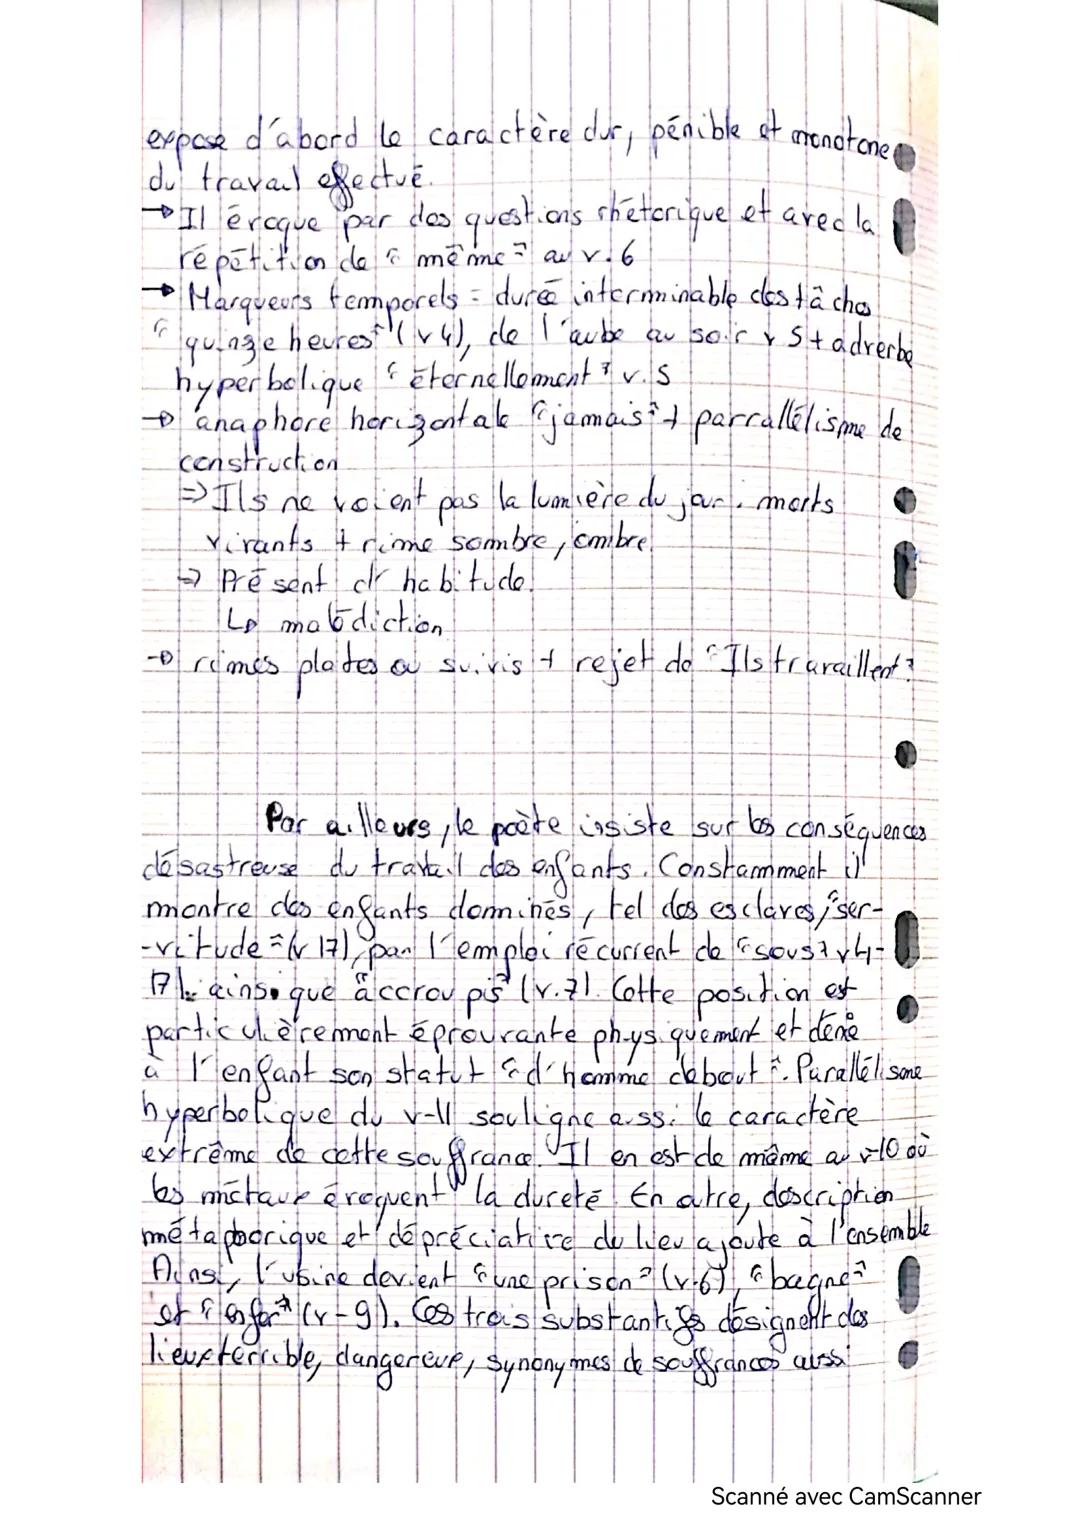 expose d'abord le caractère dur, pénible et monotone
du travail effectué.
→ Il évoque par des questions rhétorique et avec la
répétition de " même " au v.6
→ Marqueurs temporels = durée interminable des tâches
" quinze heures " (v4), de l'aube au soir v 5 + adverbe
hyperbolique " éternellement " v.5
→ anaphore horizontale "jamais" + parrallélisme de
construction
⇒ Ils ne voient pas la lumière du jour : morts
vivants + rime sombre, ombre.
⇒ Présent d'habitude.
↳ malédiction
→ rimes plates ou suivis + rejet de "Ils travaillent"
Par ailleurs, le poète insiste sur les conséquences
désastreuse du travail des enfants. Constamment il
montre des enfants dominés, tel des esclaves, "ser-
-vitude" (v 17), par l'emploi récurrent de "sous" v4-
17). ainsi que "accroupis" (v.7). Cette position est
particulièrement éprouvante physiquement et dénie
à l'enfant son statut " d'homme debout ". Parallélisme
hyperbolique du v-11 souligne aussi le caractère
extrême de cette souffrance. Il en est de même au v-10 où
les métaux évoquent la dureté. En outre, description
métaphorique et dépréciative du lieu ajoute à l'ensemble
Ainsi, l'usine devient "une prison" (v.6), "bagne"
et "enfer" (v-9). Ces trois substantifs désignent des
lieux terrible, dangereux, synonymes de souffrances aussi
Scanné avec CamScanner